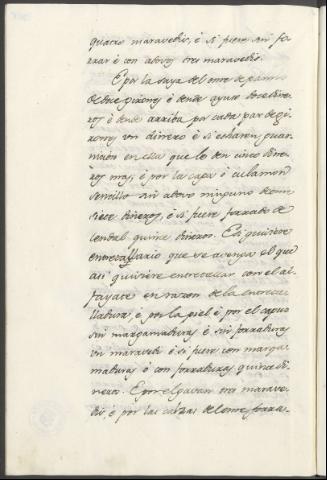 quatro maravedis, é si fuere sin fo-
rrar é con adovo, tres maravedis.
E por la saya del ome de paño
de doce girones é dende ayuso doce dine-
ros é dende arriba por cada par de gi-
rones un dinero é si echaren guar-
nicion en ella que lo den cinco dine-
ros mas; é por la capa é calamon
sencillo sin adovo ninguno dé
siete dineros, é si fuere forrado de
cendal quince dineros. E si quisiere
entretallarlo que se avenga el que
asi quisiere entretallar con el al-
fayate en razon de la entreta-
lladura, é por la piel é por el capuz
sin margamaduras é sin forraduras
un maravedi é si fuere con marga-
maduras é con forraduras quince di-
neros. E por el gavan tres marave-
dis, é por las calzas del ome forra-